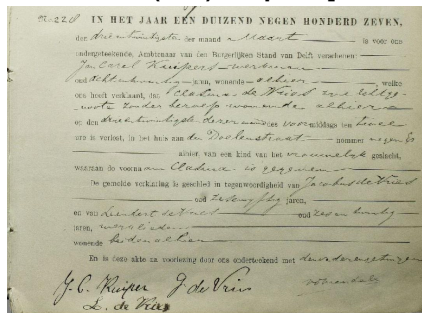 No 220 IN HET JAAR EEN DUIZEND NEGEN HONDERD ZEVEN,
den drieentwintigsten der maand Maart is voor ons
ondergeteekende, Ambtenaar van den Burgerlijken Stand van Delft verschenen:
Jan Carel Kuipers werkman
oud achtentwintig jaren, wonende alhier, welke
ons heeft verklaard, dat Clasina de Vries zijne echtge-
noote zonder beroep wonende alhier
op den dezer maand des voormiddags ten twee
ure is verlost, in het huis aan de Doelenstraat nommer negen
alhier, van een kind van het vrouwelijk geslacht,
waaraan de voornaam Clasina is gegeven
De gemelde verklaring is geschied in tegenwoordigheid van Jacobus de Vries
oud jaren,
en van Leendert de Vries oud zesentwintig
jaren, werklieden
wonende beiden alhier
En is deze akte na voorlezing door ons onderteekend met
J. C. Kuiper J. de Vries
L. de Vries